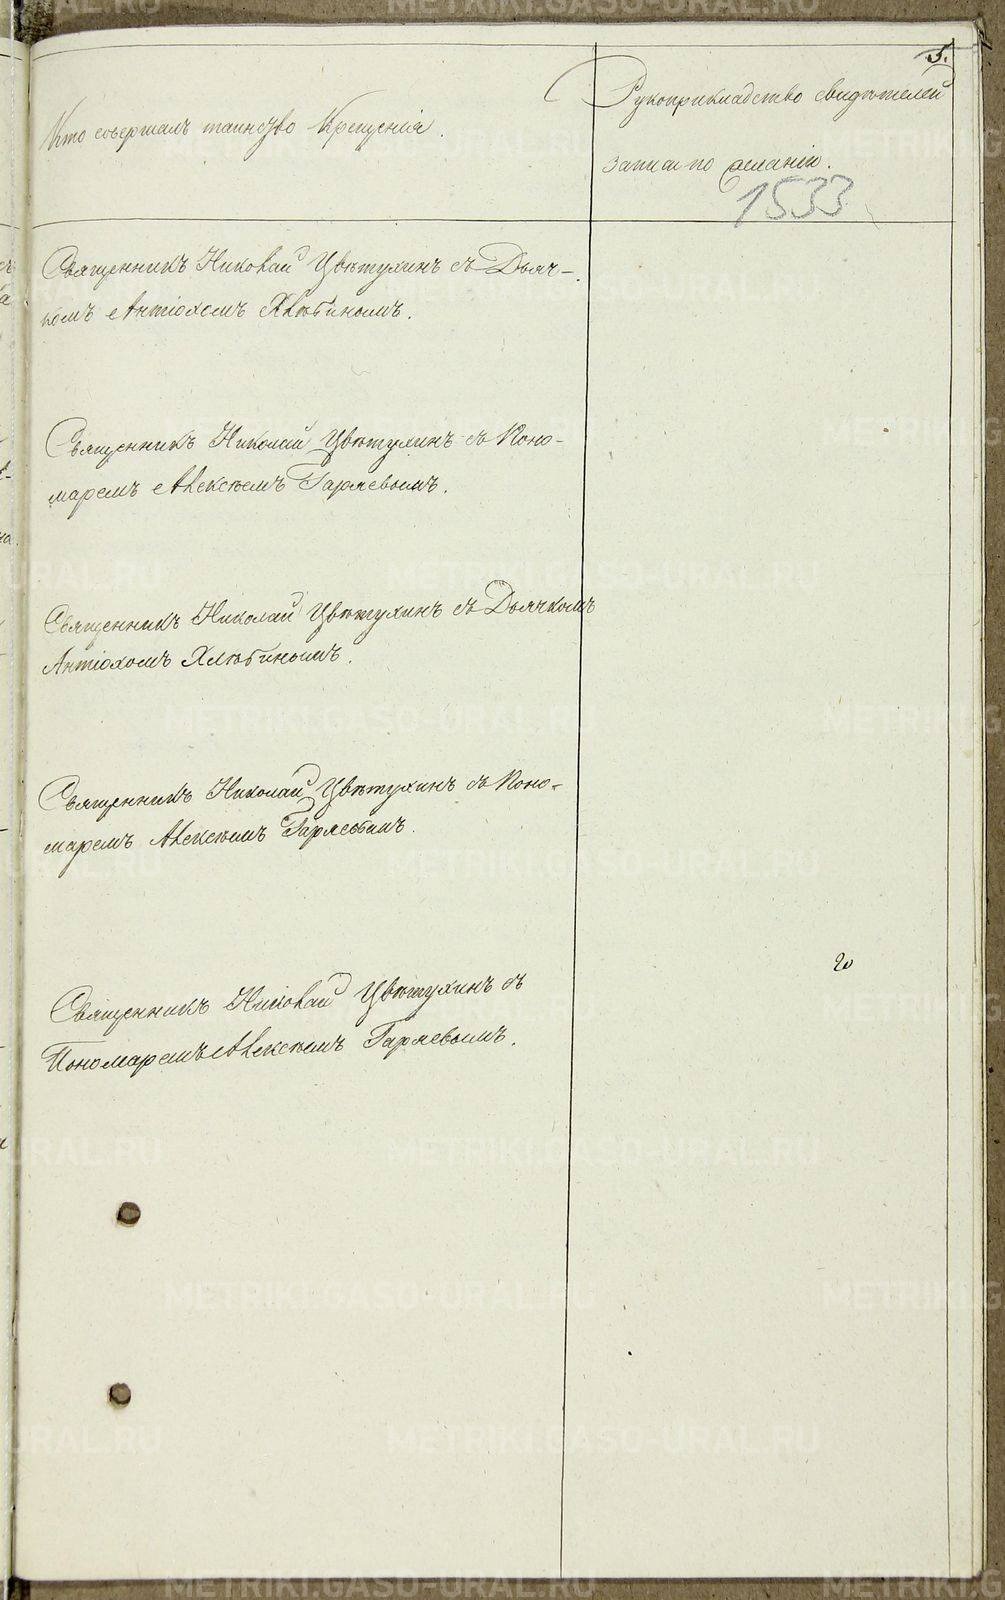 5.
Кто совершалъ таинство Крещенія.
Рукоприкладство свидѣтелей
записи по желанію.
1533
Священникъ Николай Цвѣтухинъ съ Дьяч-
комъ Антіохомъ Хлюбинымъ.
Священникъ Николай Цвѣтухинъ съ Поно-
маремъ Алексѣемъ Гаряевымъ.
Священникъ Николай Цвѣтухинъ съ Дьячкомъ
Антіохомъ Хлюбинымъ.
Священникъ Николай Цвѣтухинъ съ Поно-
маремъ Алексѣемъ Гаряевымъ.
Священникъ Николай Цвѣтухинъ съ
Пономаремъ Алексѣемъ Гаряевымъ.
METRIKI.GASO-URAL.RU